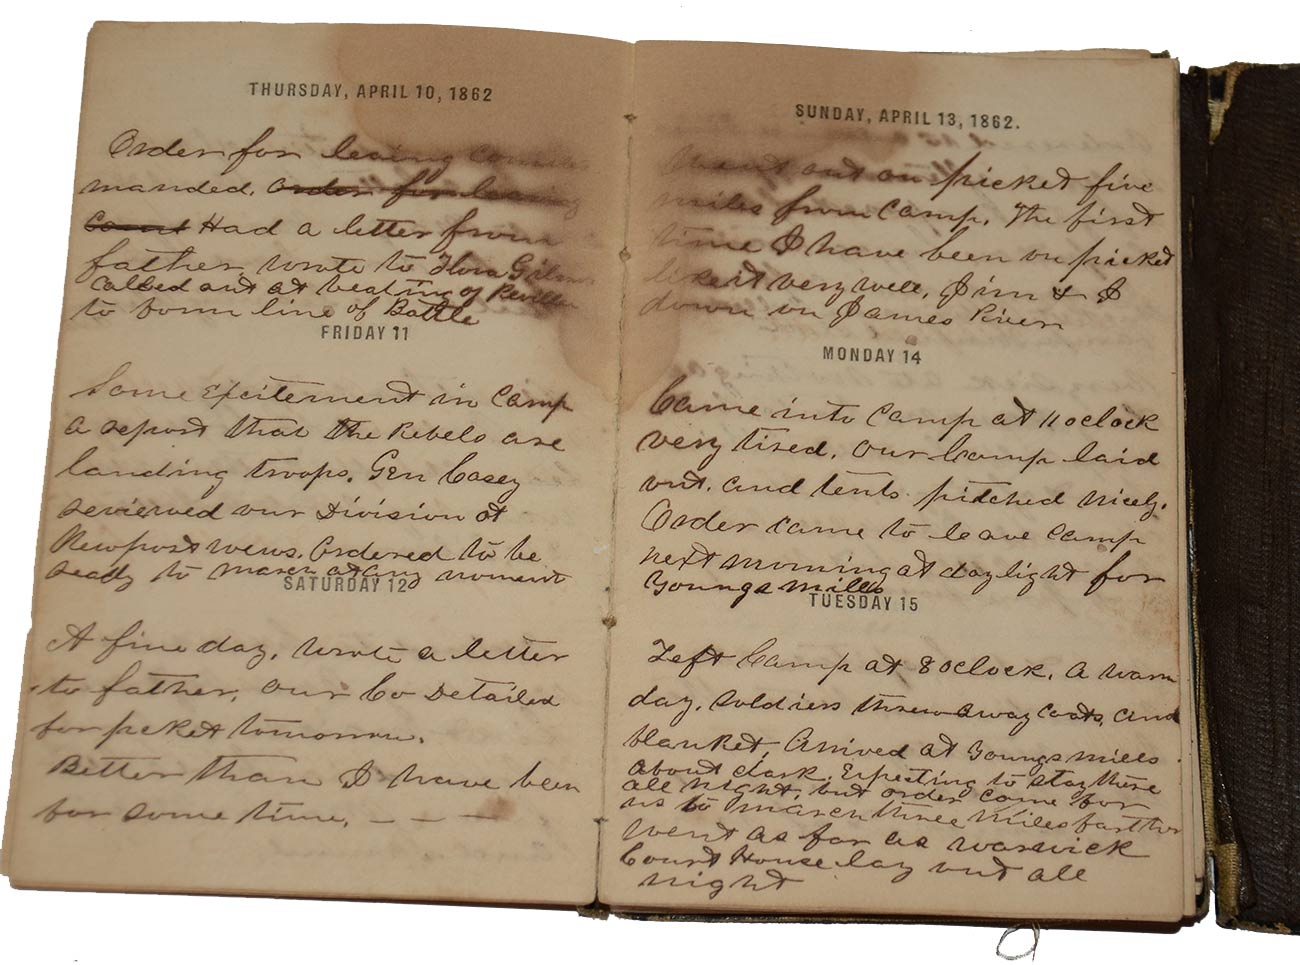 THURSDAY, APRIL 10, 1862
Order for leaving
manded. Order for leaving
Had a letter from
father, wrote to Flora
Called out at beating of Revellee
to form line of Battle
FRIDAY 11
Some Excitement in Camp
a report that the Rebels are
landing troops. Gen Casey
reviewed our Division at
Newport news. Ordered to be
ready to march at any moment
SATURDAY 12
A fine day, wrote a letter
to father, our Co Detailed
for picket tomorrow.
Better than I have been
for some time. – – –
SUNDAY, APRIL 13, 1862.
Went out on picket five
miles from Camp. The first
time I have been on picket
like it very well, Jim & I
down on James River
MONDAY 14
Came into Camp at 11 oclock
very tired. our Camp laid
out. and tents pitched nicely.
Order came to leave Camp
next morning at daylight for
Youngs mills
TUESDAY 15
Left Camp at 8 oclock. a warm
day. soldiers threw away coats, and
blanket, Arrived at Youngs mills
about dark. Expecting to stay there
all night, but order came for
us to march three miles farther
went as far as warwick
Court House lay out all
night